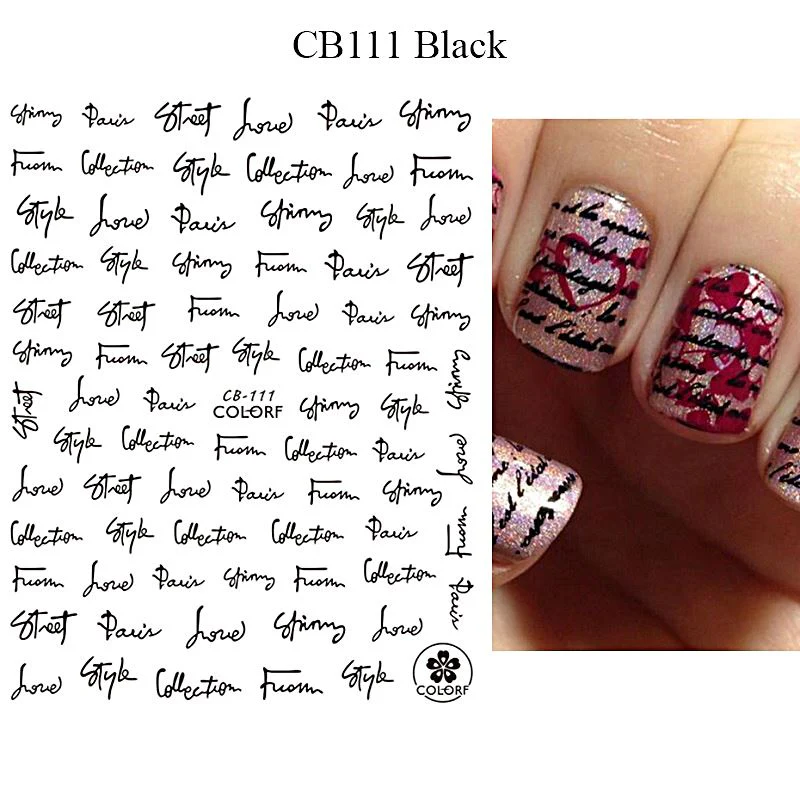 CB111 Black
Spinny Paris Street Love Paris Spinny
From Collection Style Collection Love From
Style Love Paris Spinny Style Love
Collection Style Spinny From Paris Street
Street Street From Love Paris Spinny
Spinny From Street Style Collection From
Spinny
Street Love Paris CB-111 Spinny Style
COLORF
Style Collection From Collection Paris
Love
Love Street Love Paris From Spinny
Collection Style Collection Collection Paris
From
From Love Paris Spinny From Collection
Paris
Street Paris Love Spinny Love
Love Style Collection From Style
COLORF